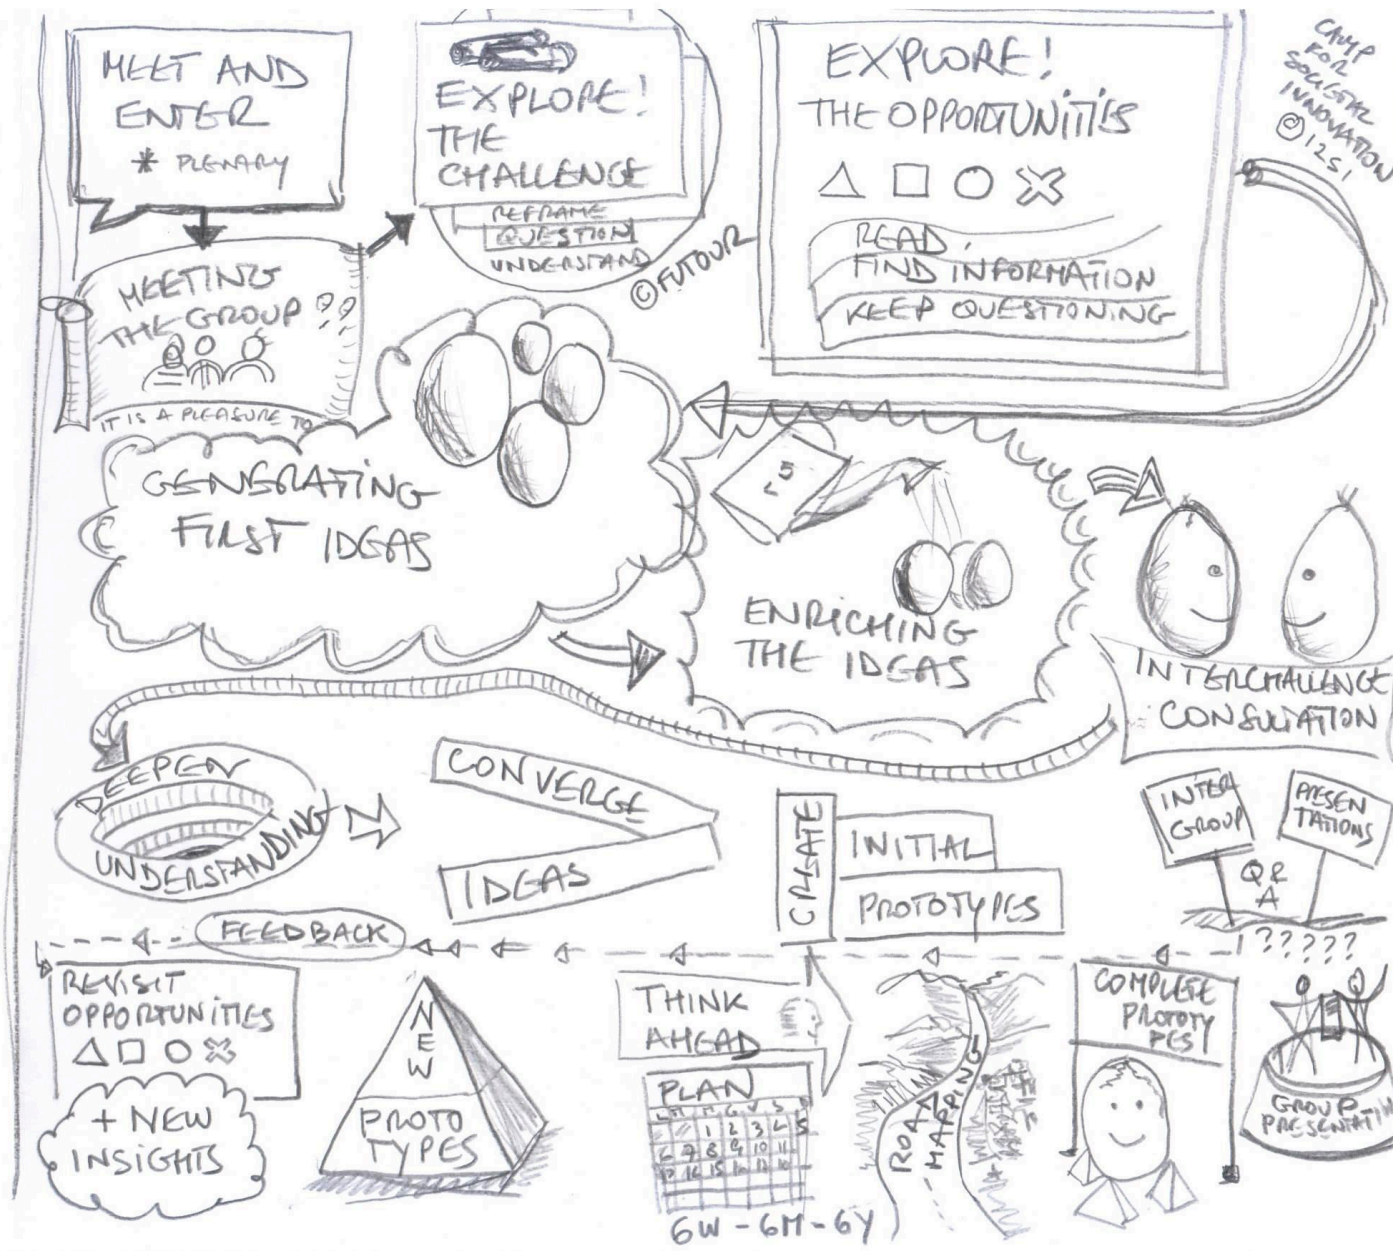 MEET AND
ENTER
* PLENARY
MEETING
THE GROUP ??
IT IS A PLEASURE TO
EXPLORE!
THE
CHALLENGE
REFRAME
QUESTION
UNDERSTAND
© FUTOUR
EXPLORE!
THE OPPORTUNITIES
READ
FIND INFORMATION
KEEP QUESTIONING
CAMP
FOR
SOCIETAL
INNOVATION
GENERATING
FIRST IDEAS
ENRICHING
THE IDEAS
INTERCHALLENGE
CONSULTATION
DEEPEN
UNDERSTANDING
CONVERGE
IDEAS
CREATE
INITIAL
PROTOTYPES
INTER
GROUP
PRESEN
TATIONS
Q &
A
?????
FEEDBACK
REVISIT
OPPORTUNITIES
+ NEW
INSIGHTS
NEW
PROTO
TYPES
THINK
AHEAD
PLAN
6W - 6M - 6Y
ROAD
MAPPING
COMPLETE
PROTOTY
PES
GROUP